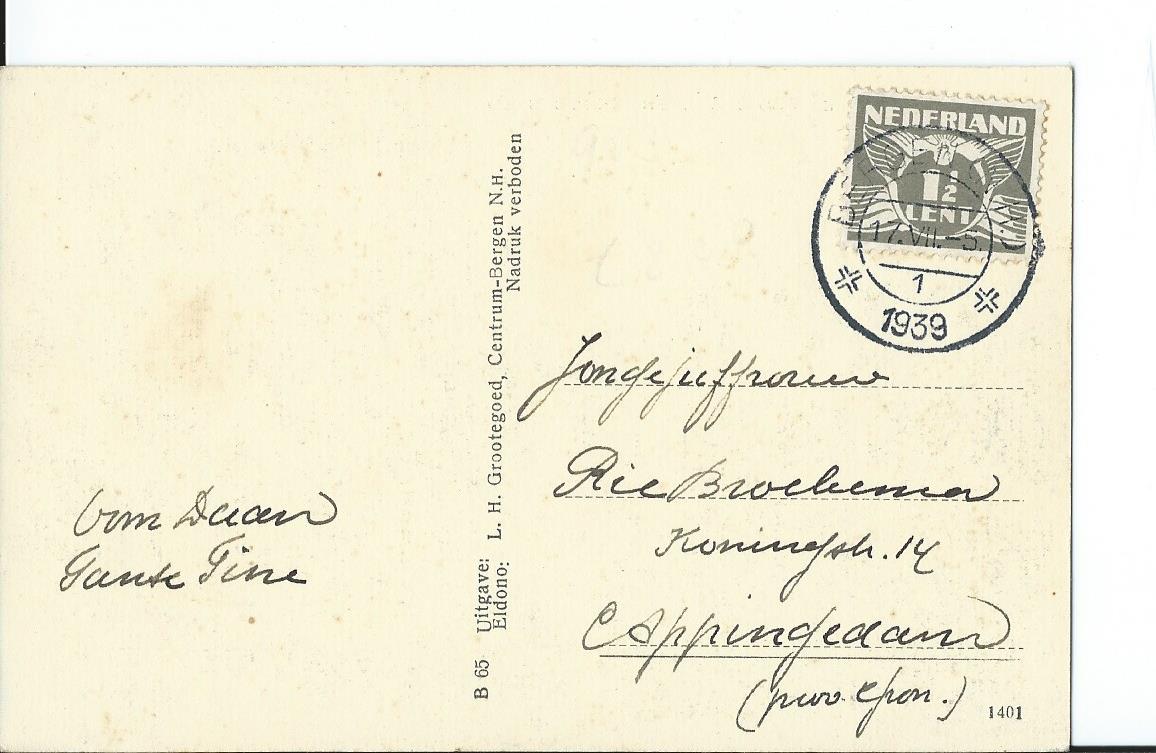 NEDERLAND
1½
CENT
BERGEN (N.H.)
17.VII.-5.
1
1939
Jongejuffrouw
Rie Broekema
Koningstr. 14
Appingedam
(prov. Gron.)
1401
Oom Daan
Tante Tine
B 65 Uitgave: L. H. Grootegoed, Centrum-Bergen N.H.
Eldono: Nadruk verboden